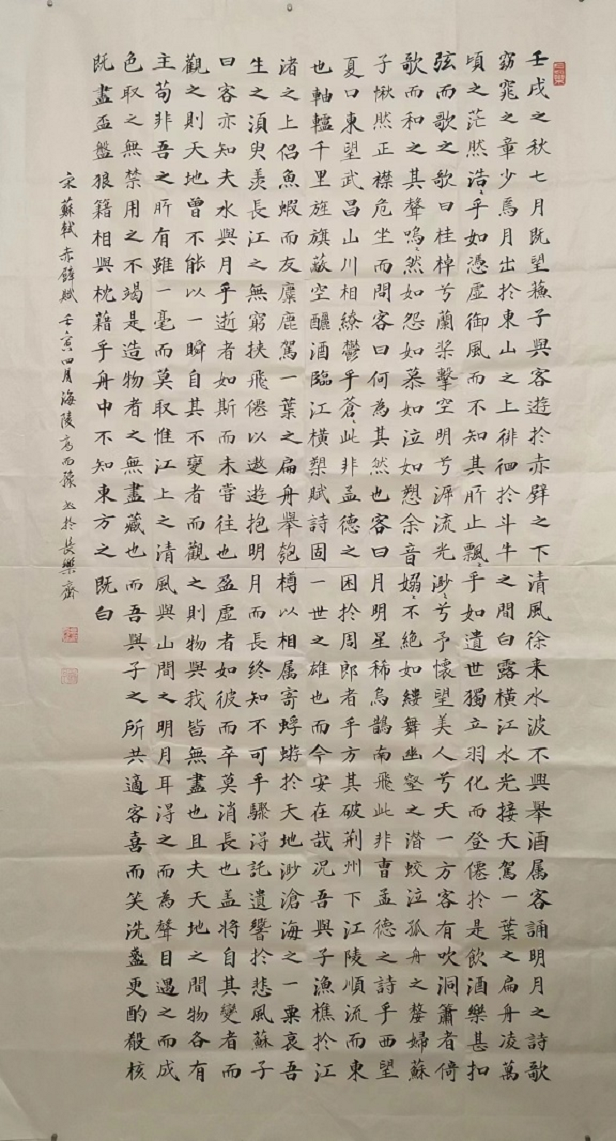 壬戌之秋七月既望蘓子與客遊於赤壁之下清風徐来水波不興舉酒属客誦明月之詩歌
窈窕之章少焉月出於東山之上徘徊於斗牛之間白露横江水光接天駕一葉之扁舟凌萬
頃之茫然浩〻乎如憑虚御風而不知其所止飄〻乎如遺世獨立羽化而登僊於是飲酒樂甚扣
弦而歌之歌曰桂棹兮蘭桨擊空明兮泝流光渺〻兮予懷望美人兮天一方客有吹洞簫者倚
歌而和之其聲嗚〻然如怨如慕如泣如愬余音嫋〻不絶如縷舞幽壑之潜蛟泣孤舟之嫠婦蘇
子愀然正襟危坐而問客曰何為其然也客曰月明星稀烏鵲南飛此非曹孟德之詩乎西望
夏口東望武昌山川相繚鬱乎蒼〻此非孟德之困於周郎者乎方其破荆州下江陵順流而東
也軸轤千里旌旗蔽空釃酒臨江横槊賦詩固一世之雄也而今安在哉况吾與子漁樵於江
渚之上侣魚蝦而友麋鹿駕一葉之扁舟舉匏樽以相属寄蜉蝣於天地渺滄海之一粟哀吾
生之須臾羡長江之無窮挟飛僊以遨遊抱明月而長终知不可乎驟得託遺響於悲風蘇子
曰客亦知夫水與月乎逝者如斯而未嘗往也盈虚者如彼而卒莫消長也盖将自其變者而
觀之則天地曾不能以一瞬自其不變者而觀之則物與我皆無盡也且夫天地之間物各有
主苟非吾之所有雖一毫而莫取惟江上之清風與山間之明月耳得之而為聲目遇之而成
色取之無禁用之不竭是造物者之無盡藏也而吾與子之所共適客喜而笑洗盞更酌殽核
既盡盃盤狼籍相與枕藉乎舟中不知東方之既白
宋蘇軾赤壁賦壬寅四月海陵高西书於長樂齋